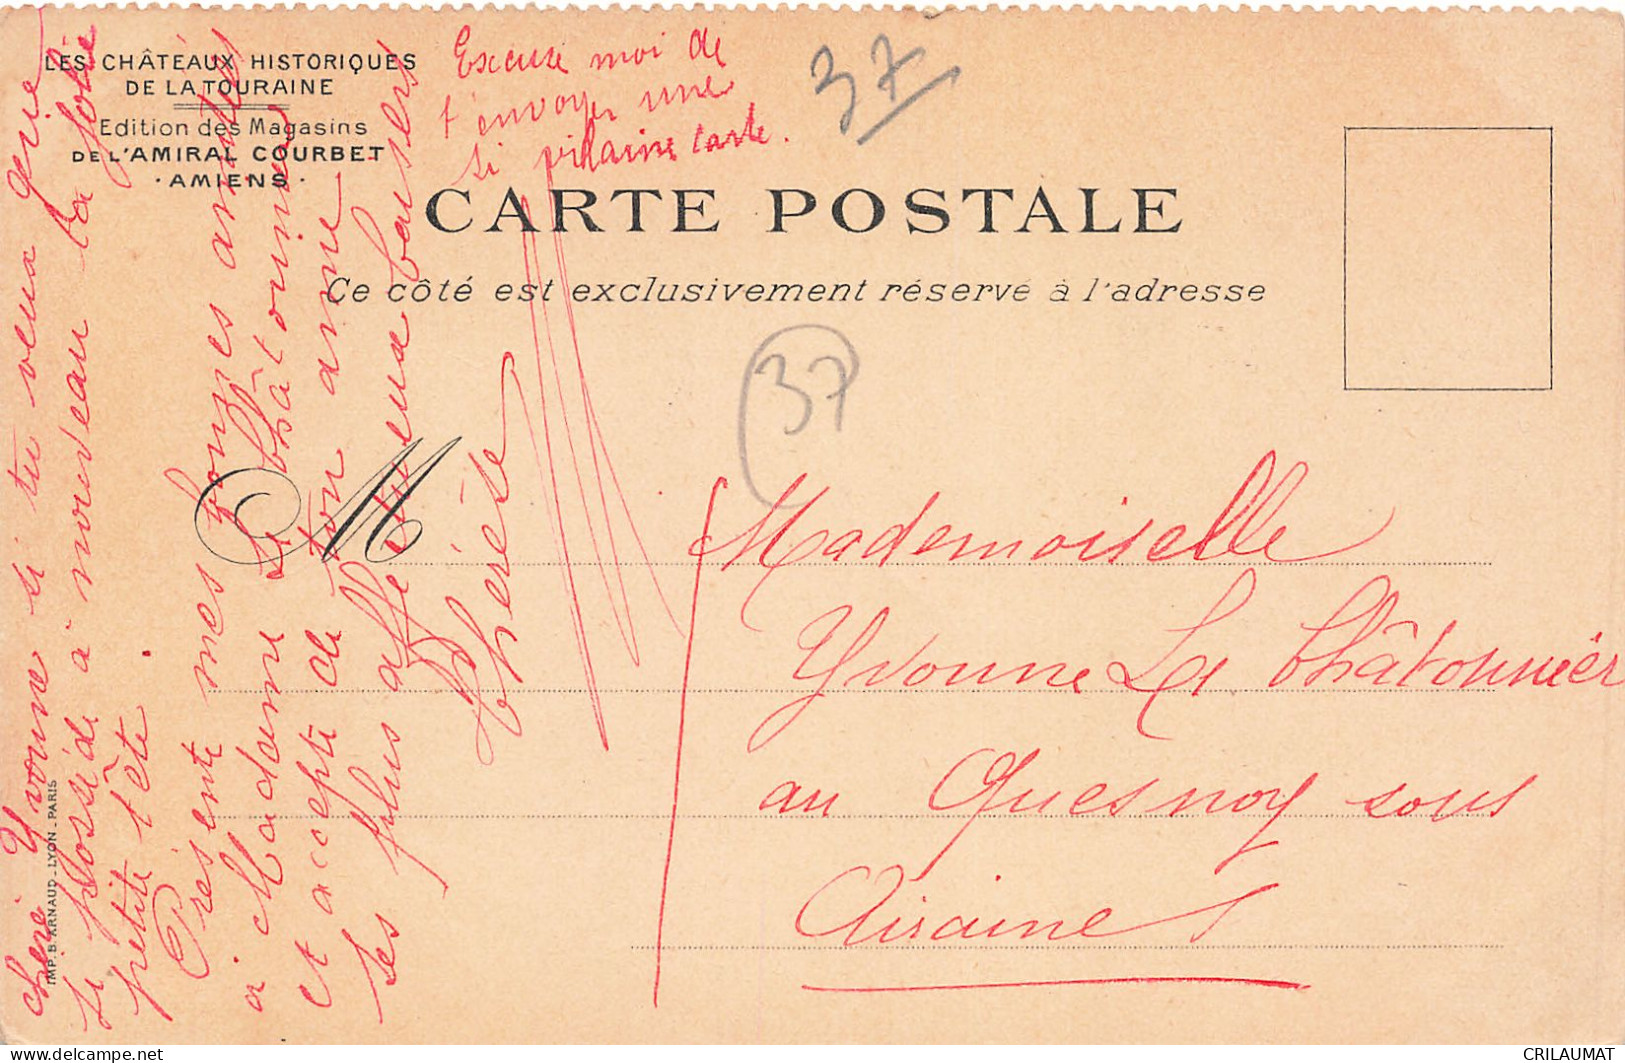 LES CHÂTEAUX HISTORIQUES
DE LA TOURAINE
Edition des Magasins
DE L'AMIRAL COURBET
· AMIENS ·
Excuse moi de
t'envoyer une
si vilaine carte.
37
CARTE POSTALE
Ce côté est exclusivement réservé à l'adresse
37
M
Mademoiselle
Yvonne Le Châtonnier
au Quesnoy sous
Airaines
chère Yvonne si tu veux
te posséde à nouveau la jolie
petite tête.
Présente mes bonnes amitiés
à Madame Le Châtonnier
et accepte de ton amie
les plus affectueux baisers
Thérèse
IMP. B. ARNAUD - LYON - PARIS
CRILAUMAT
https://www.delcampe.net